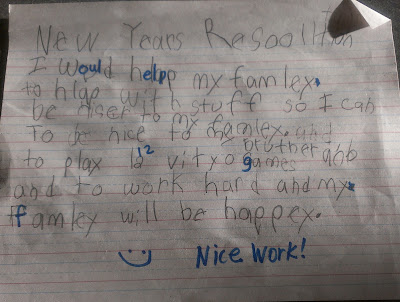 New Years Resoolltion
I would helpp my famley.
to hlap with stuff so I can
be niser to my
To be nice to famley. and
bruther abb
to play 12 vityo games
and to work hard and my
famley will be happey.
Nice work!